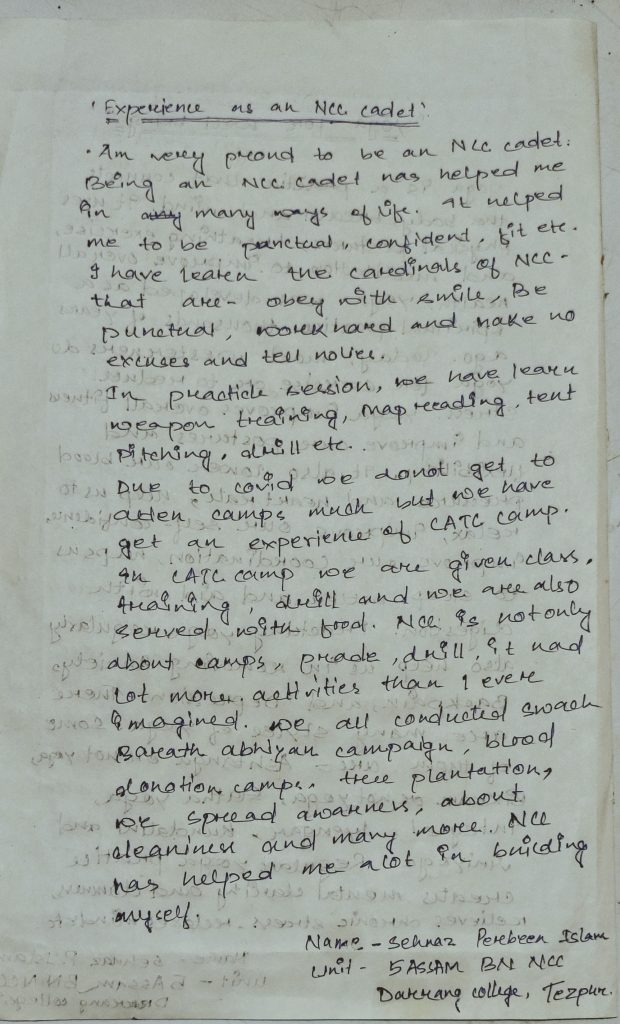 'Experience as an NCC cadet'.
• Am very proud to be an NCC cadet.
Being an NCC cadet has helped me
in many ways of life. It helped
me to be punctual, confident, fit etc.
I have learen the cardinals of NCC -
that are - obey with smile, Be
punctual, work hard and make no
excuses and tell no lies.
In practicle session, we have learn
weapon training, map reading, tent
pitching, drill etc.
Due to covid we donot get to
atten camps much but we have
get an experience of CATC camp.
In CATC camp we are given class,
training, drill and we are also
served with food. NCC is not only
about camps, prade, drill, it had
lot more activities than I evere
imagined. we all conducted swach
Barath abhiyan campaign, blood
donation camps, tree plantation,
we spread awarness, about
cleaniness and many more. NCC
has helped me alot in building
myself.
Name - Sehnaz Perebeen Islam
Unit - 5 ASSAM BN NCC
Darrang college, Tezpur.